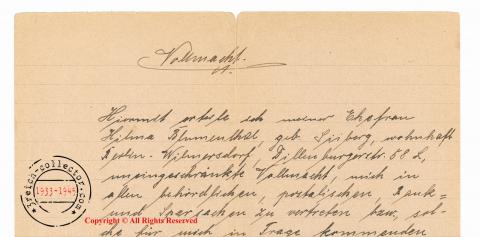 Vollmacht.
Hiermit erteile ich meiner Ehefrau
Hilma Blumenthal, geb. wohnhaft
Berlin-Wilmersdorf, Dillenburgerstr. 58
uneingeschränkte Vollmacht, mich in
allen behördlichen, postalischen, Bank-
und Sparsachen zu vertreten bzw. sol-
che für mich in Frage kommenden
3reich-collector.com
1933-1945
Copyright © All Rights Reserved